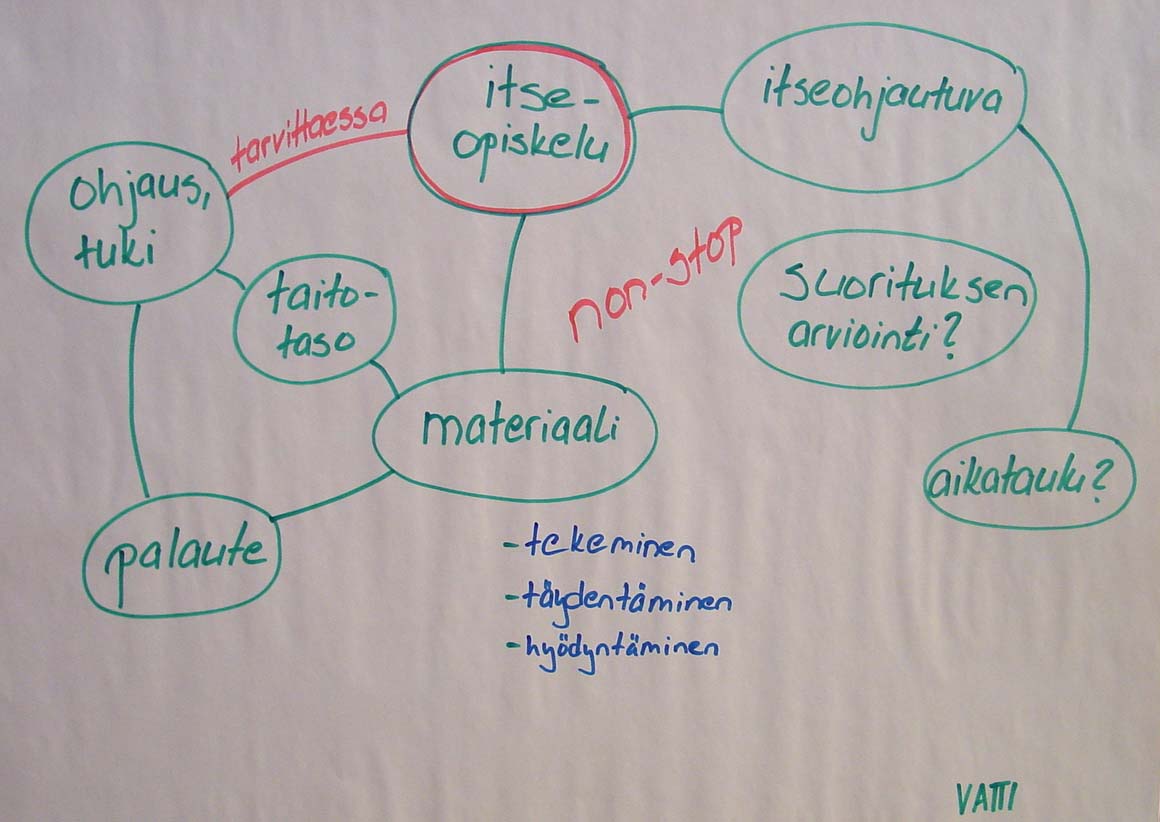 itse-
opiskelu
itseohjautuva
tarvittaessa
ohjaus,
tuki
taito-
taso
non-stop
suorituksen
arviointi?
materiaali
aikataulu?
palaute
-tekeminen
-täydentäminen
-hyödyntäminen
VATTI